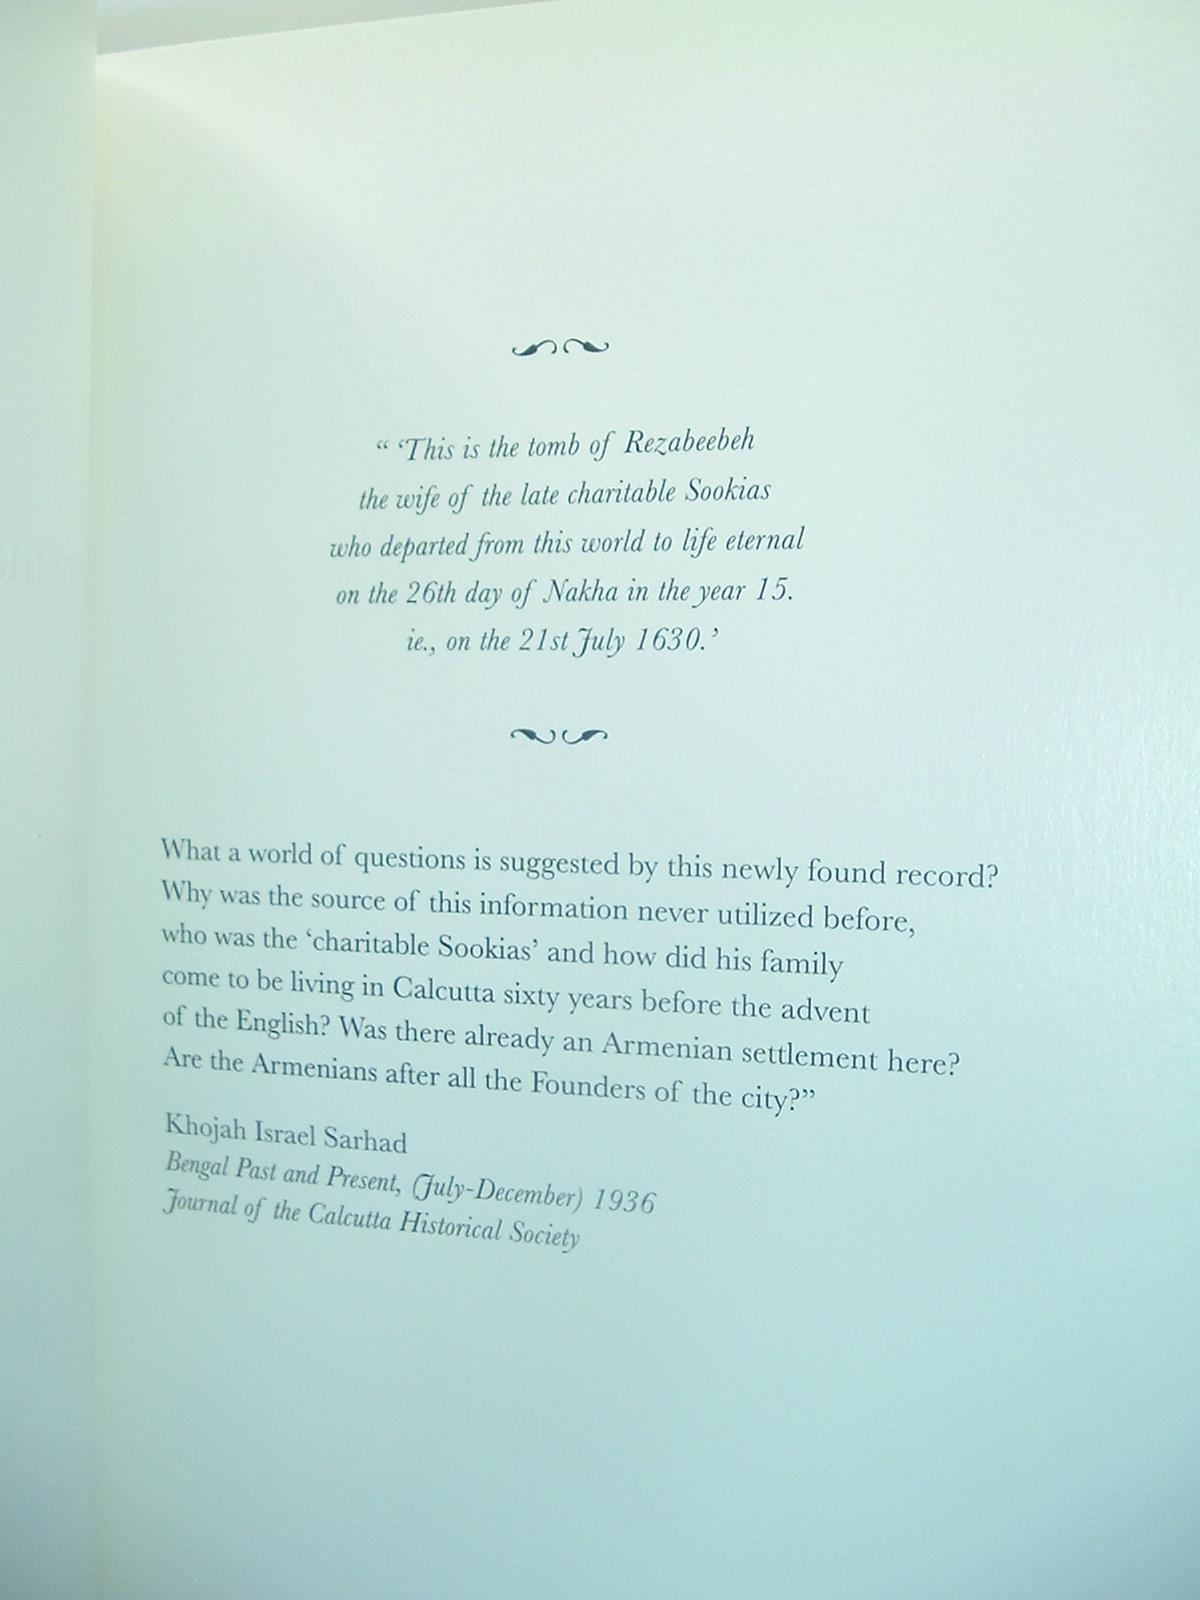 “ ‘This is the tomb of Rezabeebeh
the wife of the late charitable Sookias
who departed from this world to life eternal
on the 26th day of Nakha in the year 15.
ie., on the 21st July 1630.’
What a world of questions is suggested by this newly found record?
Why was the source of this information never utilized before,
who was the ‘charitable Sookias’ and how did his family
come to be living in Calcutta sixty years before the advent
of the English? Was there already an Armenian settlement here?
Are the Armenians after all the Founders of the city?”
Khojah Israel Sarhad
Bengal Past and Present, (July-December) 1936
Journal of the Calcutta Historical Society